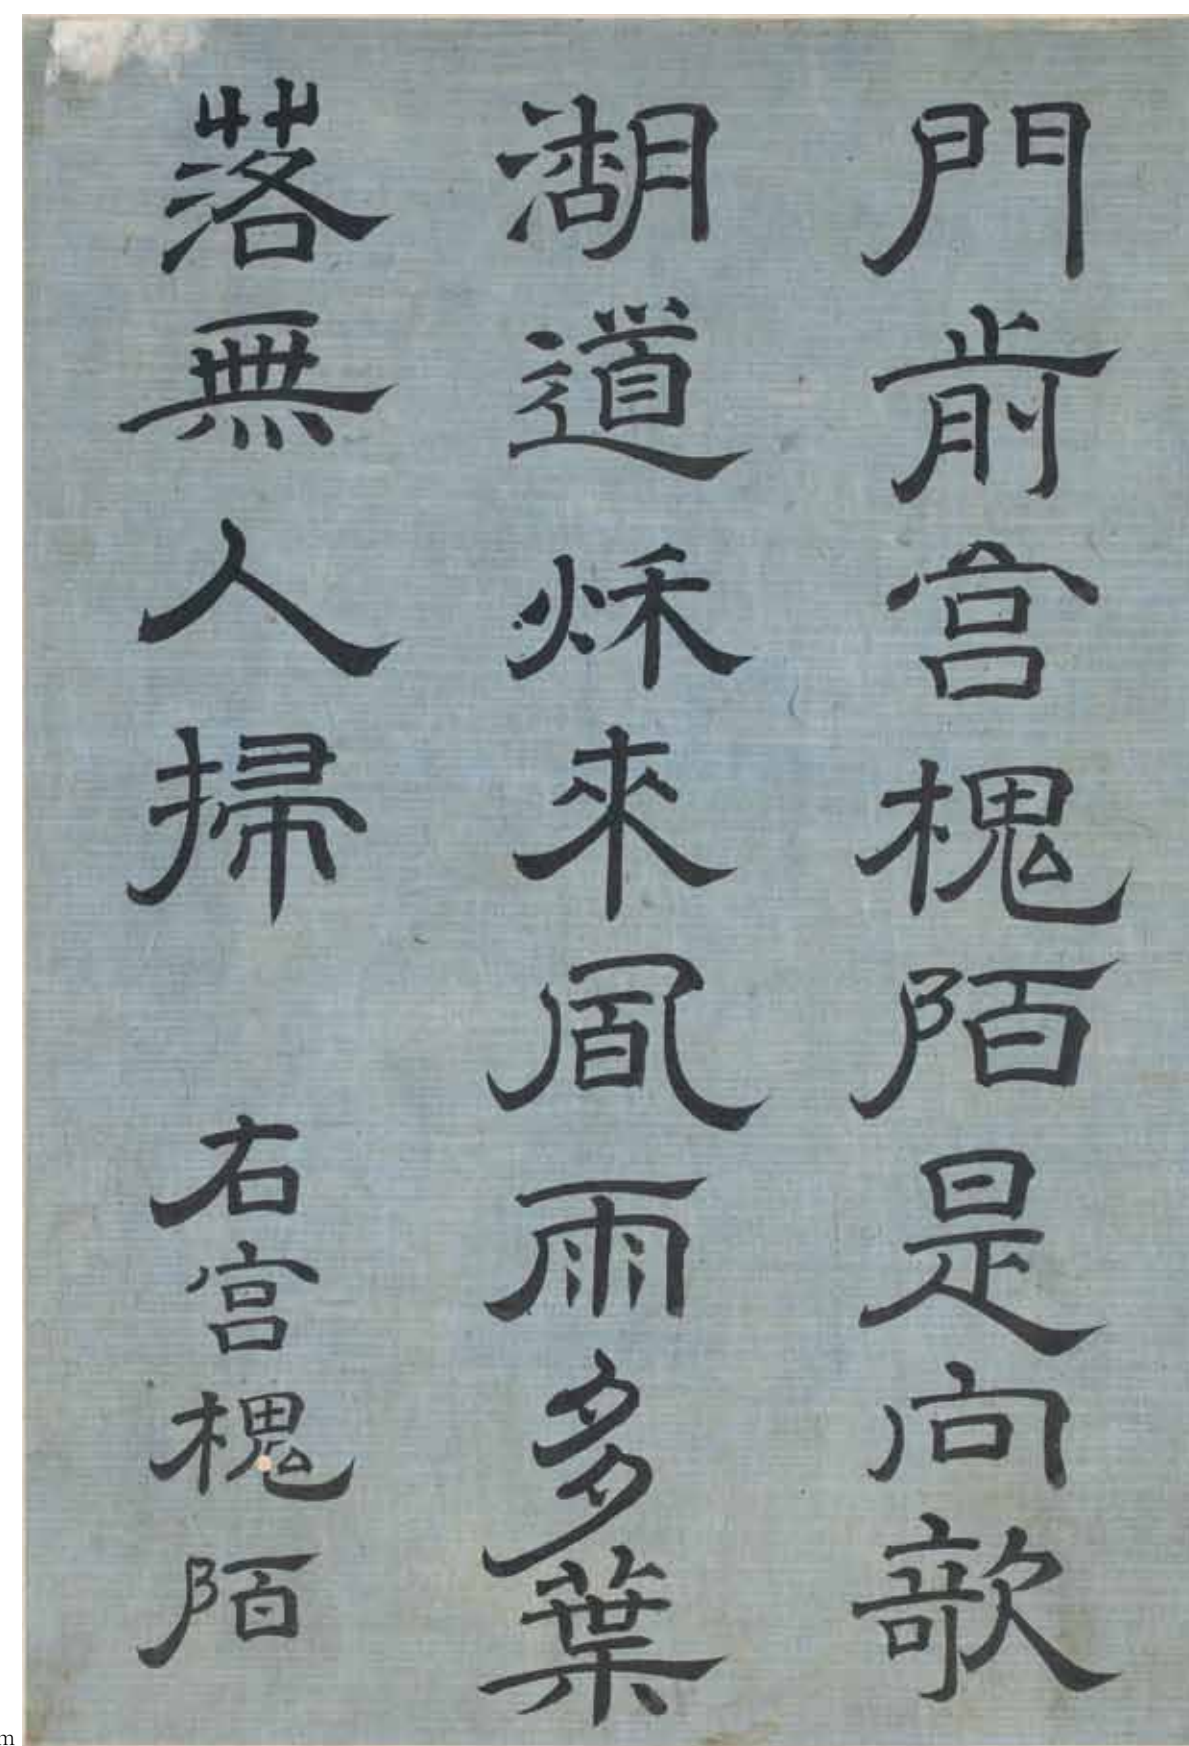 門前宮槐陌是向欹
湖道秌來風雨多葉
落無人掃 右宮槐陌
m